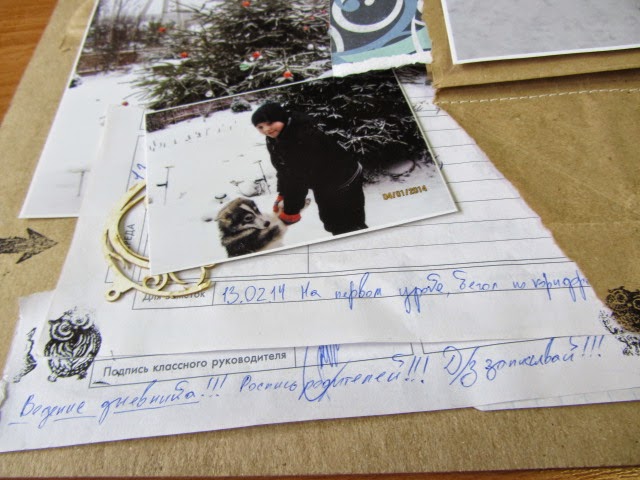 04/01/2014
РЕДА
Для заметок 13.02.14 На первом уроке, бегал по коридор
Подпись классного руководителя
Ведение дневника!!! Роспись родителей!!! Д/з записывай!!!